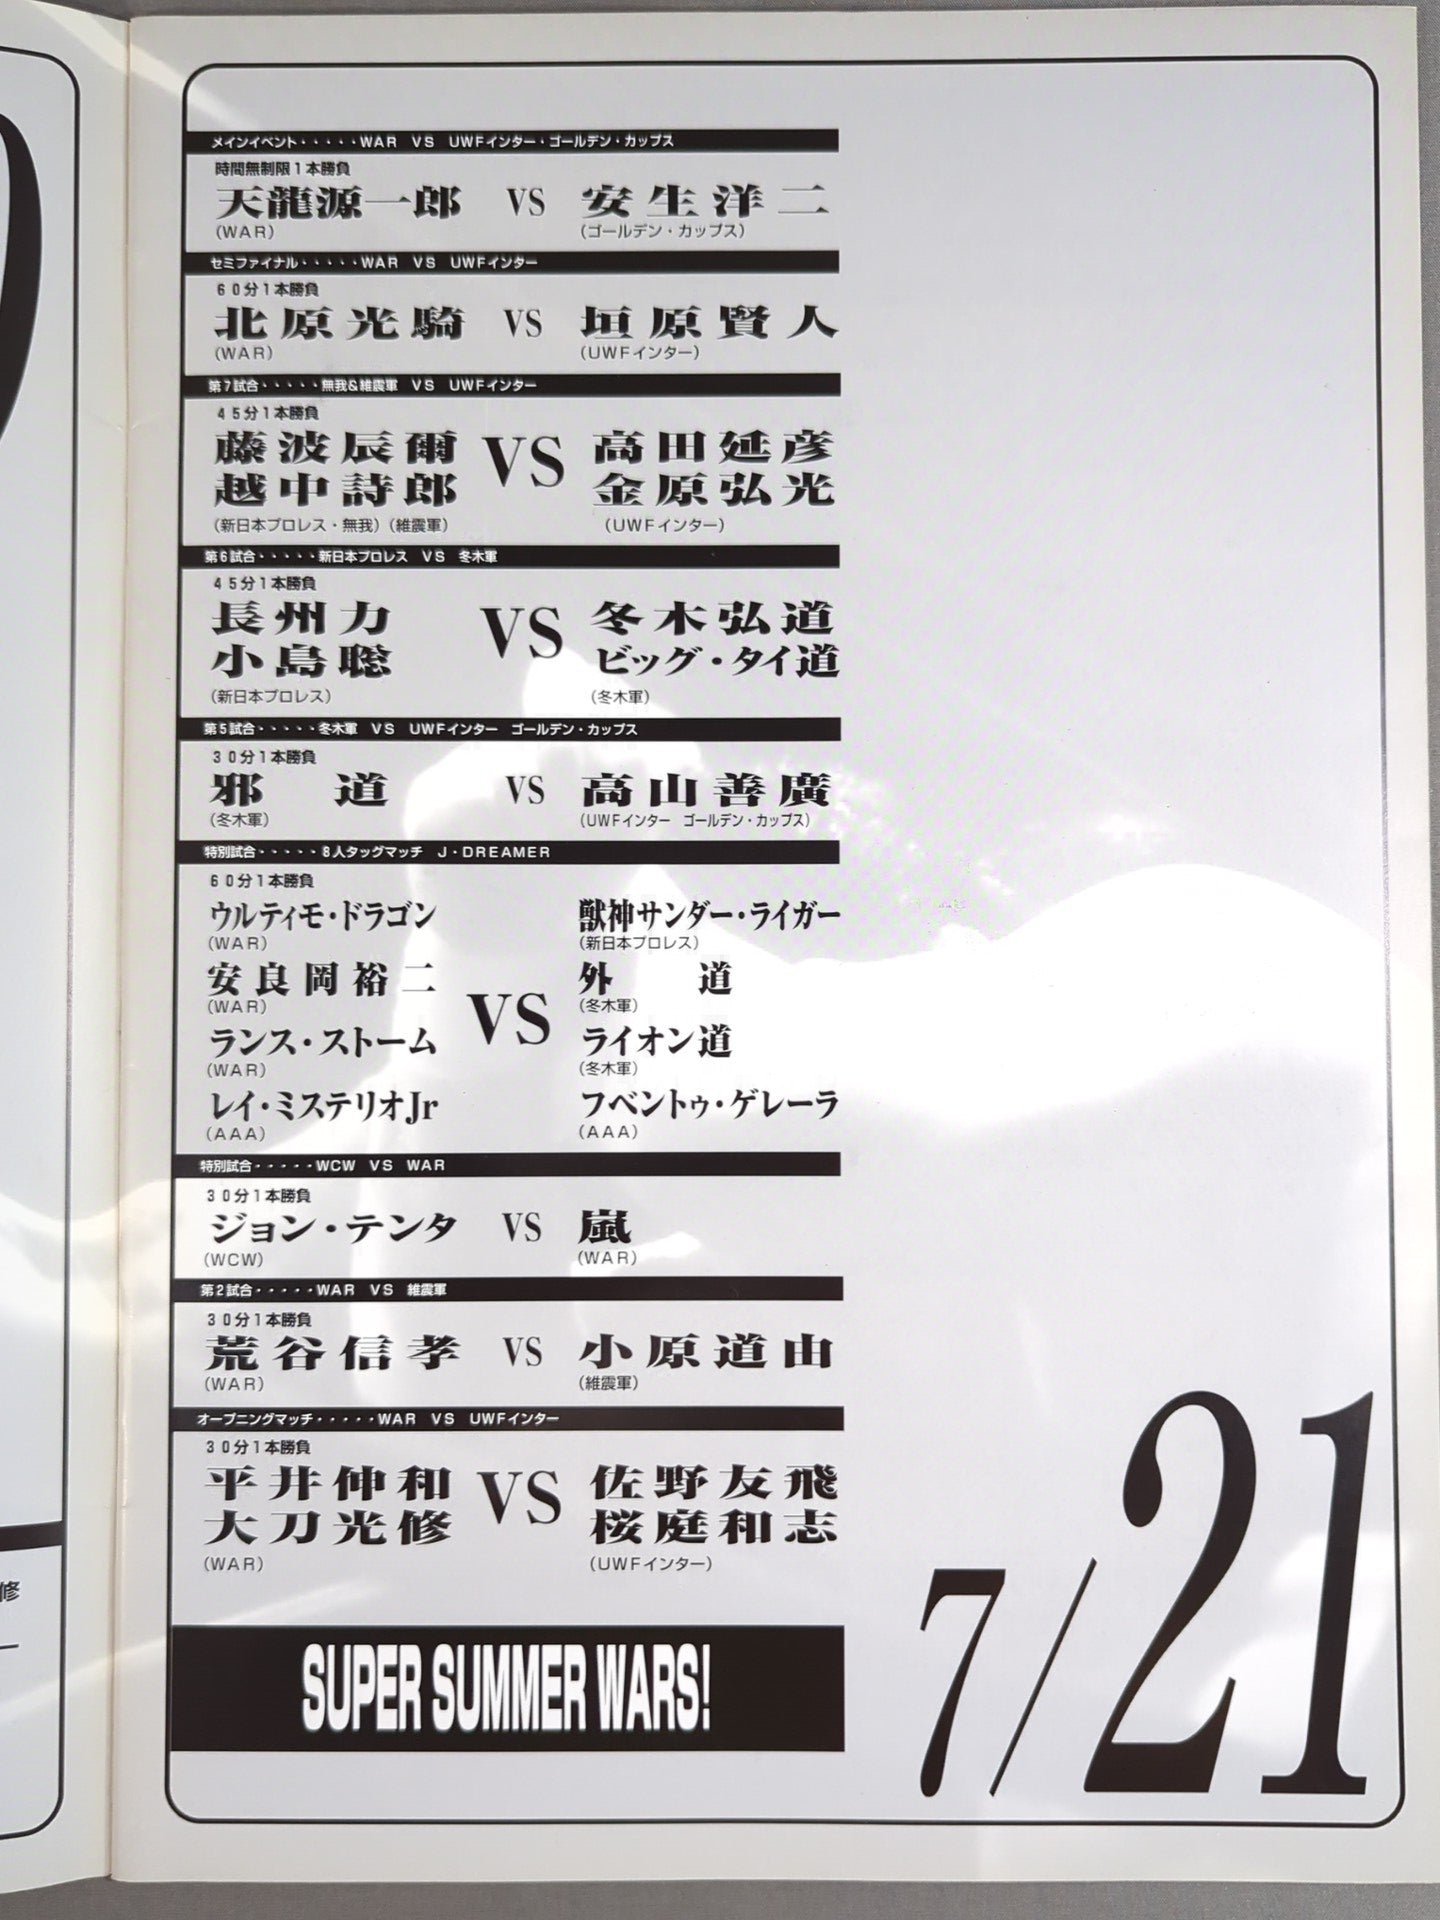 メインイベント・・・・・WAR VS UWFインター・ゴールデン・カップス
時間無制限1本勝負
天龍源一郎 VS 安生洋二
(WAR) (ゴールデン・カップス)
セミファイナル・・・・・WAR VS UWFインター
60分1本勝負
北原光騎 VS 垣原賢人
(WAR) (UWFインター)
第7試合・・・・・無我&維震軍 VS UWFインター
45分1本勝負
藤波辰爾 VS 高田延彦
越中詩郎 金原弘光
(新日本プロレス・無我)(維震軍) (UWFインター)
第6試合・・・・・新日本プロレス VS 冬木軍
45分1本勝負
長州力 VS 冬木弘道
小島聡 ビッグ・タイ道
(新日本プロレス) (冬木軍)
第5試合・・・・・冬木軍 VS UWFインター ゴールデン・カップス
30分1本勝負
邪道 VS 高山善廣
(冬木軍) (UWFインター ゴールデン・カップス)
特別試合・・・・・8人タッグマッチ J・DREAMER
60分1本勝負
ウルティモ・ドラゴン 獣神サンダー・ライガー
(WAR) (新日本プロレス)
安良岡裕二 外道
(WAR) (冬木軍)
VS
ランス・ストーム ライオン道
(WAR) (冬木軍)
レイ・ミステリオJr フベントゥ・ゲレーラ
(AAA) (AAA)
特別試合・・・・・WCW VS WAR
30分1本勝負
ジョン・テンタ VS 嵐
(WCW) (WAR)
第2試合・・・・・WAR VS 維震軍
30分1本勝負
荒谷信孝 VS 小原道由
(WAR) (維震軍)
オープニングマッチ・・・・・WAR VS UWFインター
30分1本勝負
平井伸和 VS 佐野友飛
大刀光修 桜庭和志
(WAR) (UWFインター)
SUPER SUMMER WARS!
7/21
修